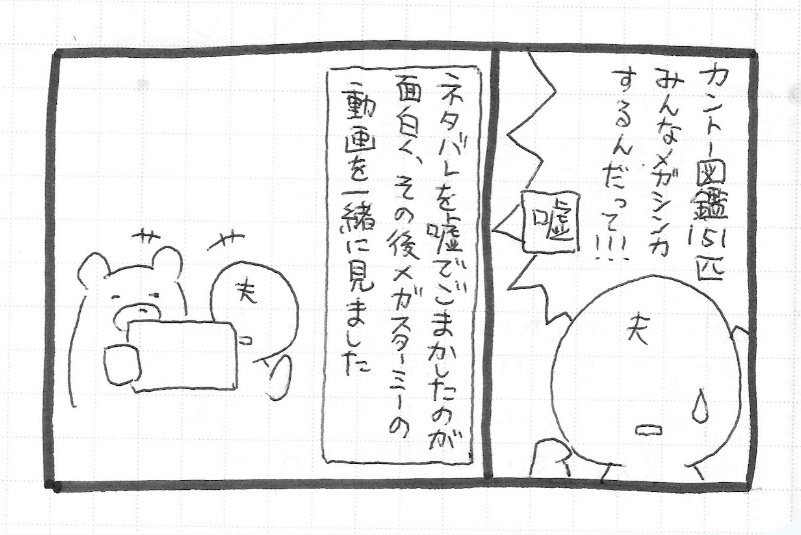 カントー図鑑151匹
みんなメガシンカ
するんだって!!!
嘘
夫
ネタバレを嘘でごまかしたのが
面白く、その後メガスターミーの
動画を一緒に見ました
夫